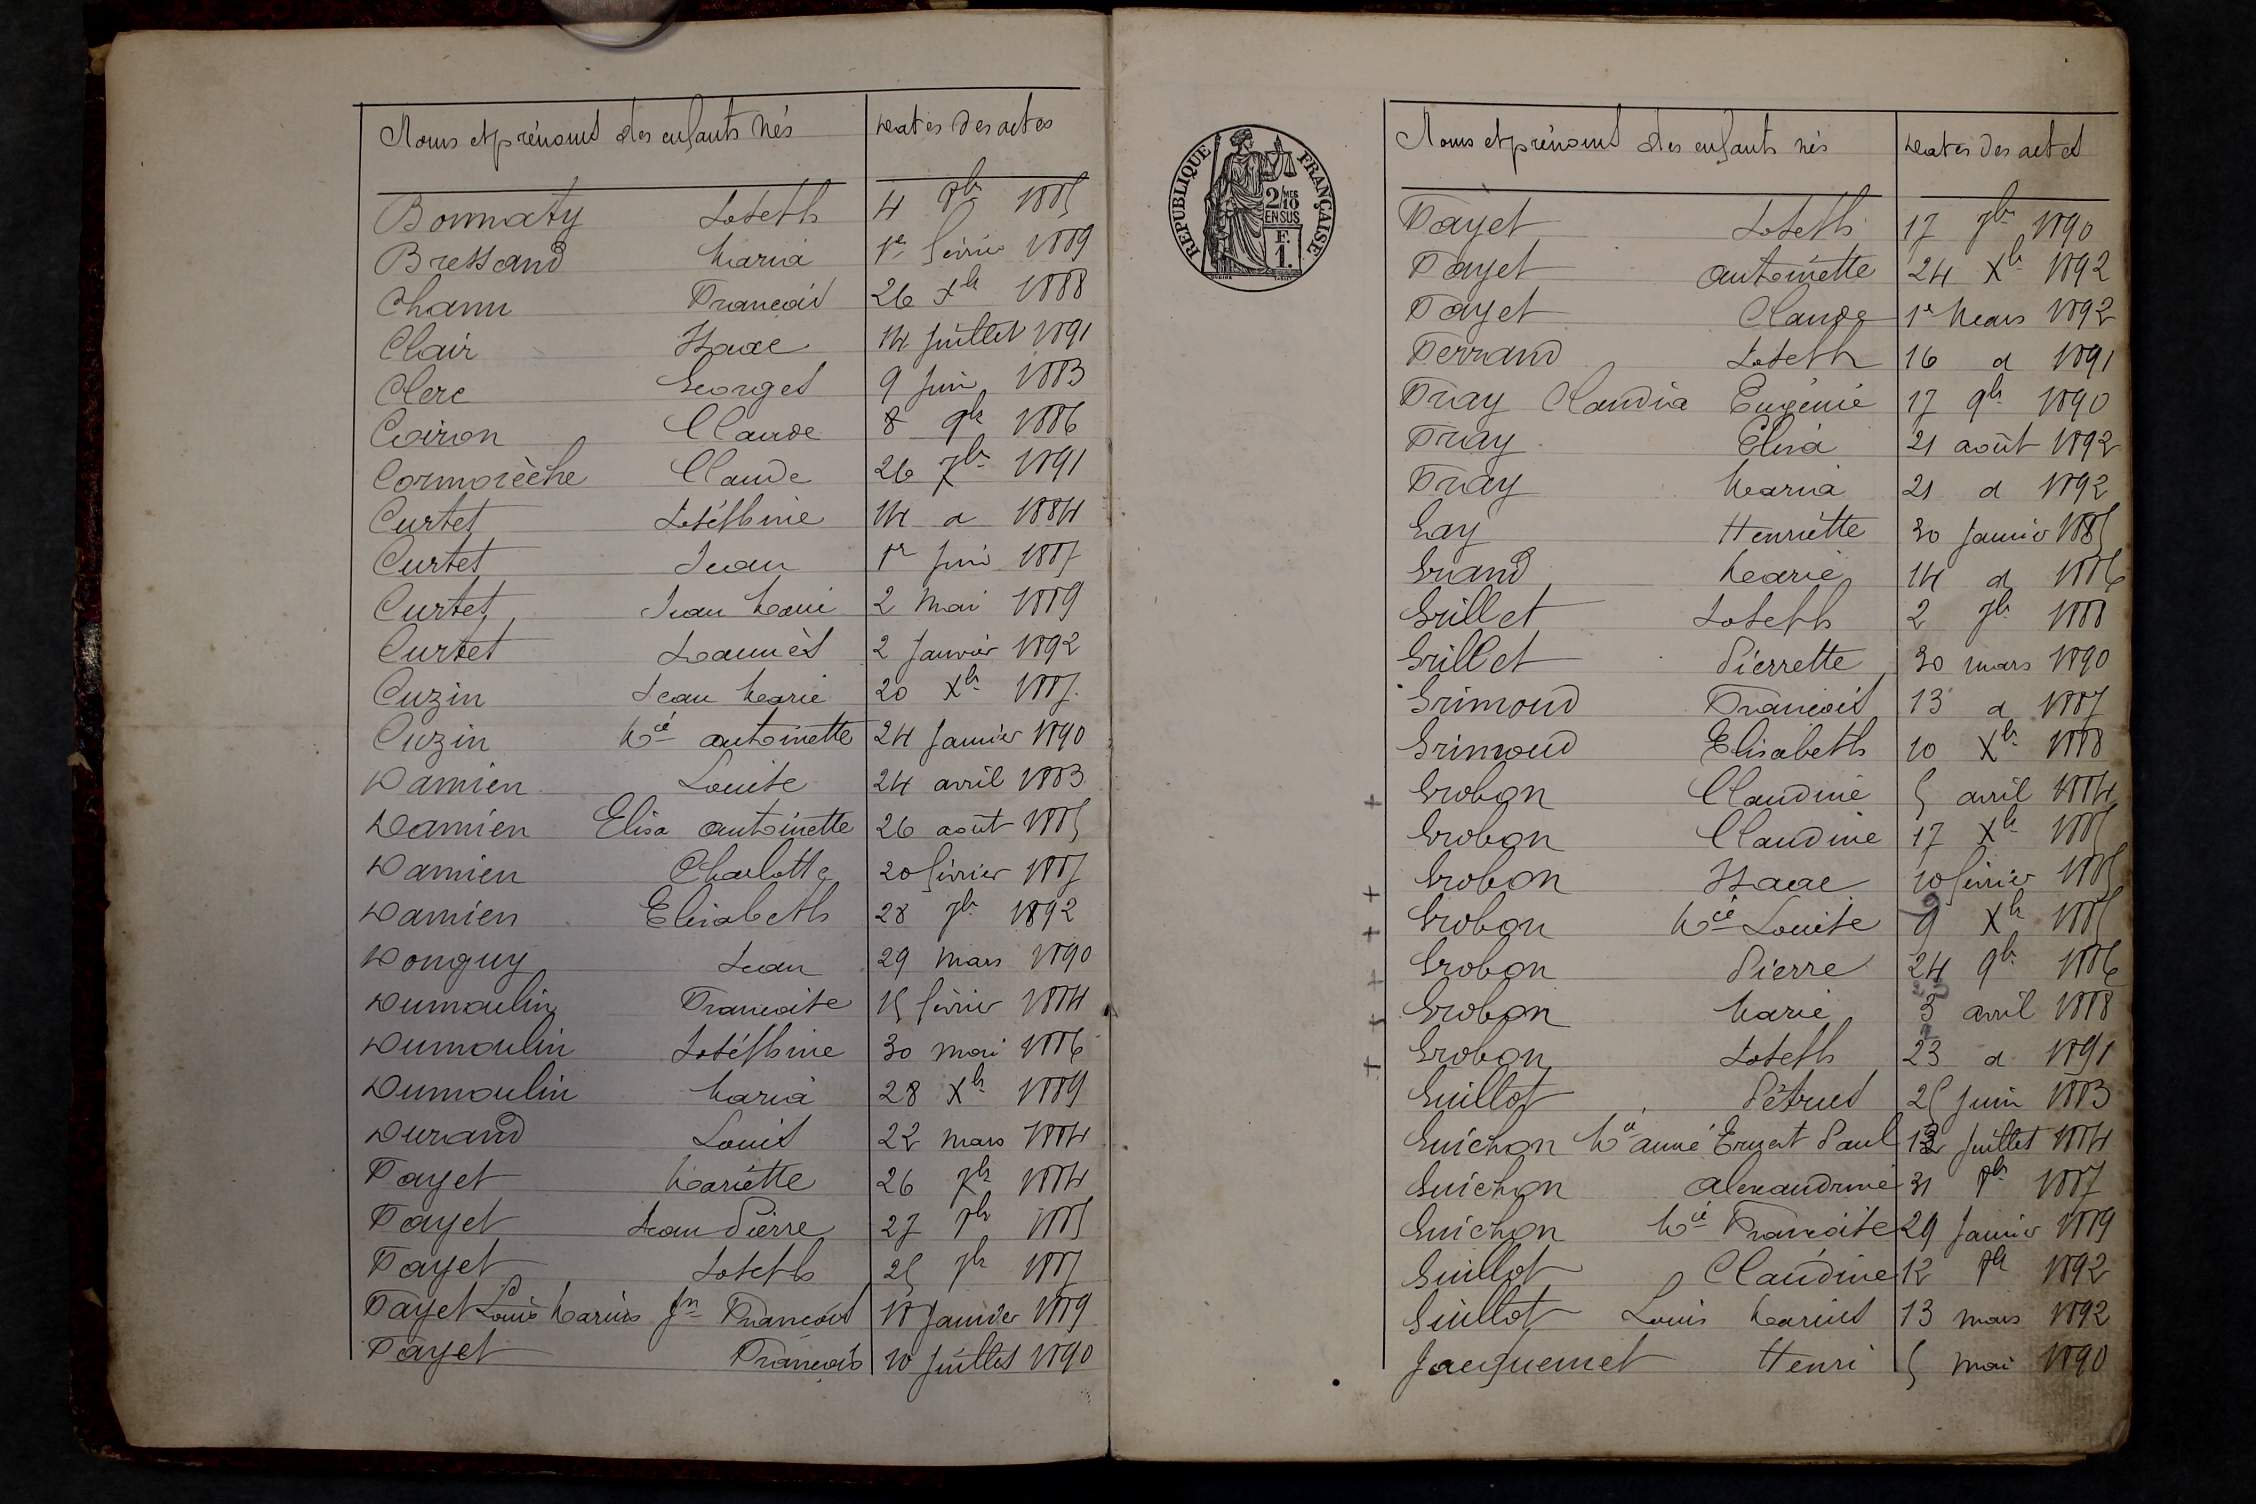 Noms et prénoms des enfants nés Dates des actes
Bonnaty Joseph 4 8bre 1885
Bressand Maria 1er février 1889
Chanu François 26 Xbre 1888
Clair Isaac 14 Juillet 1891
Clerc Georges 9 Juin 1883
Coiron Claude 8 9bre 1886
Cormorèche Claude 26 7bre 1891
Curtet Joséphine 14 d 1884
Curtet Jean 1er Juin 1887
Curtet Jean Marie 2 Mai 1889
Curtet Joannès 2 Janvier 1892
Cuzin Jean Marie 20 Xbre 1887
Cuzin Mie antoinette 24 Janvier 1890
Damien Louise 24 avril 1883
Damien Elisa antoinette 26 août 1885
Damien Charlotte 20 février 1887
Damien Elisabeth 28 7bre 1892
Donguy Jean 29 Mars 1890
Dumoulin Françoise 15 février 1884
Dumoulin Joséphine 30 mai 1886
Dumoulin Maria 28 Xbre 1889
Durand Louis 22 mars 1884
Fayet Mariette 26 7bre 1884
Fayet Jean Pierre 27 8bre 1885
Fayet Joseph 25 7bre 1887
Fayet Louis Marius Jn François 18 Janvier 1889
Fayet François 10 Juillet 1890
RÉPUBLIQUE FRANÇAISE
2/10 MES
EN SUS
F.
1.
Noms et prénoms des enfants nés Dates des actes
Fayet Joseph 17 7bre 1890
Fayet antoinette 24 Xbre 1892
Fayet Claude 1er Mars 1892
Ferrand Joseph 16 d 1891
Fray Claudia Eugénie 17 9bre 1890
Fray Elisa 21 août 1892
Fray Maria 21 d 1892
Gay Henriette 30 Janvier 1885
Grand Marie 14 d 1886
Grillet Joseph 2 7bre 1888
Grillet Pierrette 30 mars 1890
Grimoud François 13 d 1887
Grimoud Elisabeth 10 Xbre 1888
+ Grobon Claudine 5 avril 1884
Grobon Claudine 17 Xbre 1885
+ Grobon Isaac 10 février 1885
+ Grobon Mie Louise 9 Xbre 1885
+ Grobon Pierre 24 9bre 1886
+ Grobon Marie 3 avril 1888
+ Grobon Joseph 23 d 1891
Guillot Pétrus 25 Juin 1883
Guichon Mie anne Ernest Paul Juillet 1884
Guichon Alexandrine 31 8bre 1887
Guichon Mie Françoise 29 Janvier 1889
Guillot Claudine 12 8bre 1892
Guillot Louis Marius 13 mars 1892
Jacquemet Henri 5 Mai 1890